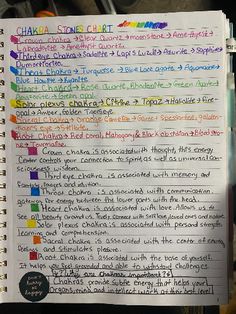 CHAKRA STONES CHART
Crown chakra → Clear Quartz → moonstone → Amethyst →
Labradorite → Amethyst Quartz.
Third eye Chakra → Sodalite → Lapis Lazuli → Azurite → Sapphire
Dumortierite.
Throat Chakra → Turquoise → Blue Lace agate → Aquamarine →
Blue Howlite → Kyanite.
Heart Chakra → Rose Quartz, Rhodonite, Green Agate
Green opal.
Solar plexus Chakra → Citrine → Topaz →
Opal → Amber, Golden Tigerseye.
Sacral Chakra → Orange → Garnet, Spessartine, golden
tigers eye → Stilbite.
Root Chakra → Red Coral, Mahogany & Black obsidian →
Tourmaline.
Crown Chakra is associated with thought, this energy
Center controls your connection to Spirit as well as universal con-
sciousness wisdom.
Third eye Chakra is associated with memory and
fantasy, images and intuition.
Throat Chakra is associated with communication,
gateway for energy between the lower parts and the head.
Heart Chakra is associated with love. Allows us to
see all beauty around us, truly connect with self love loved ones and nature.
Solar plexus Chakra is associated with personal strength
learning and comprehension.
Sacral Chakra is associated with the center of energy,
feelings and stimulates pleasure.
Root Chakra is associated with the base of yourself.
It helps you feel grounded and able to withstand challenges
Why are Chakras important?
Chakras provide subtle energy that helps your
Organs, mind and intellect work at their best level.